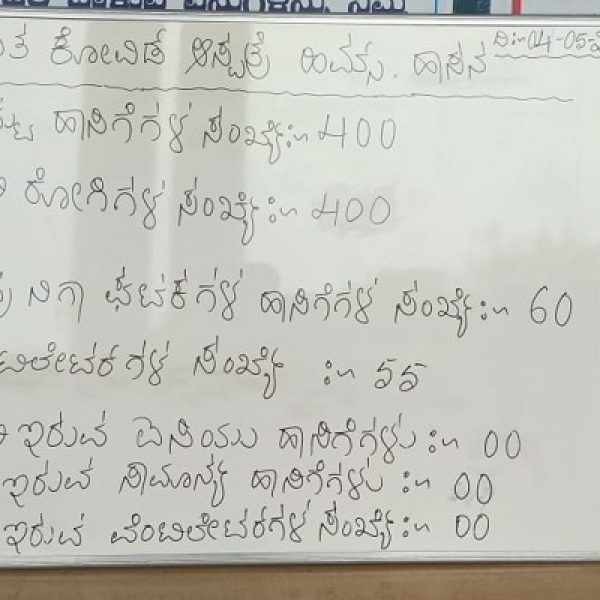 ಕೋವಿಡ್ ಆಸ್ಪತ್ರೆ ಹಿಮ್ಸ್. ಹಾಸನ ದಿ:-04-05-
ಹಾಸಿಗೆಗಳ ಸಂಖ್ಯೆ:- 400
ರೋಗಿಗಳ ಸಂಖ್ಯೆ:- 400
ನಿಗಾ ಘಟಕಗಳ ಹಾಸಿಗೆಗಳ ಸಂಖ್ಯೆ:- 60
ಸಂಖ್ಯೆ :- 55
ಇರುವ ಐಸಿಯು ಹಾಸಿಗೆಗಳು :- 00
ಇರುವ ಸಾಮಾನ್ಯ ಹಾಸಿಗೆಗಳು :- 00
ಇರುವ ವೆಂಟಿಲೇಟರಗಳ ಸಂಖ್ಯೆ:- 00